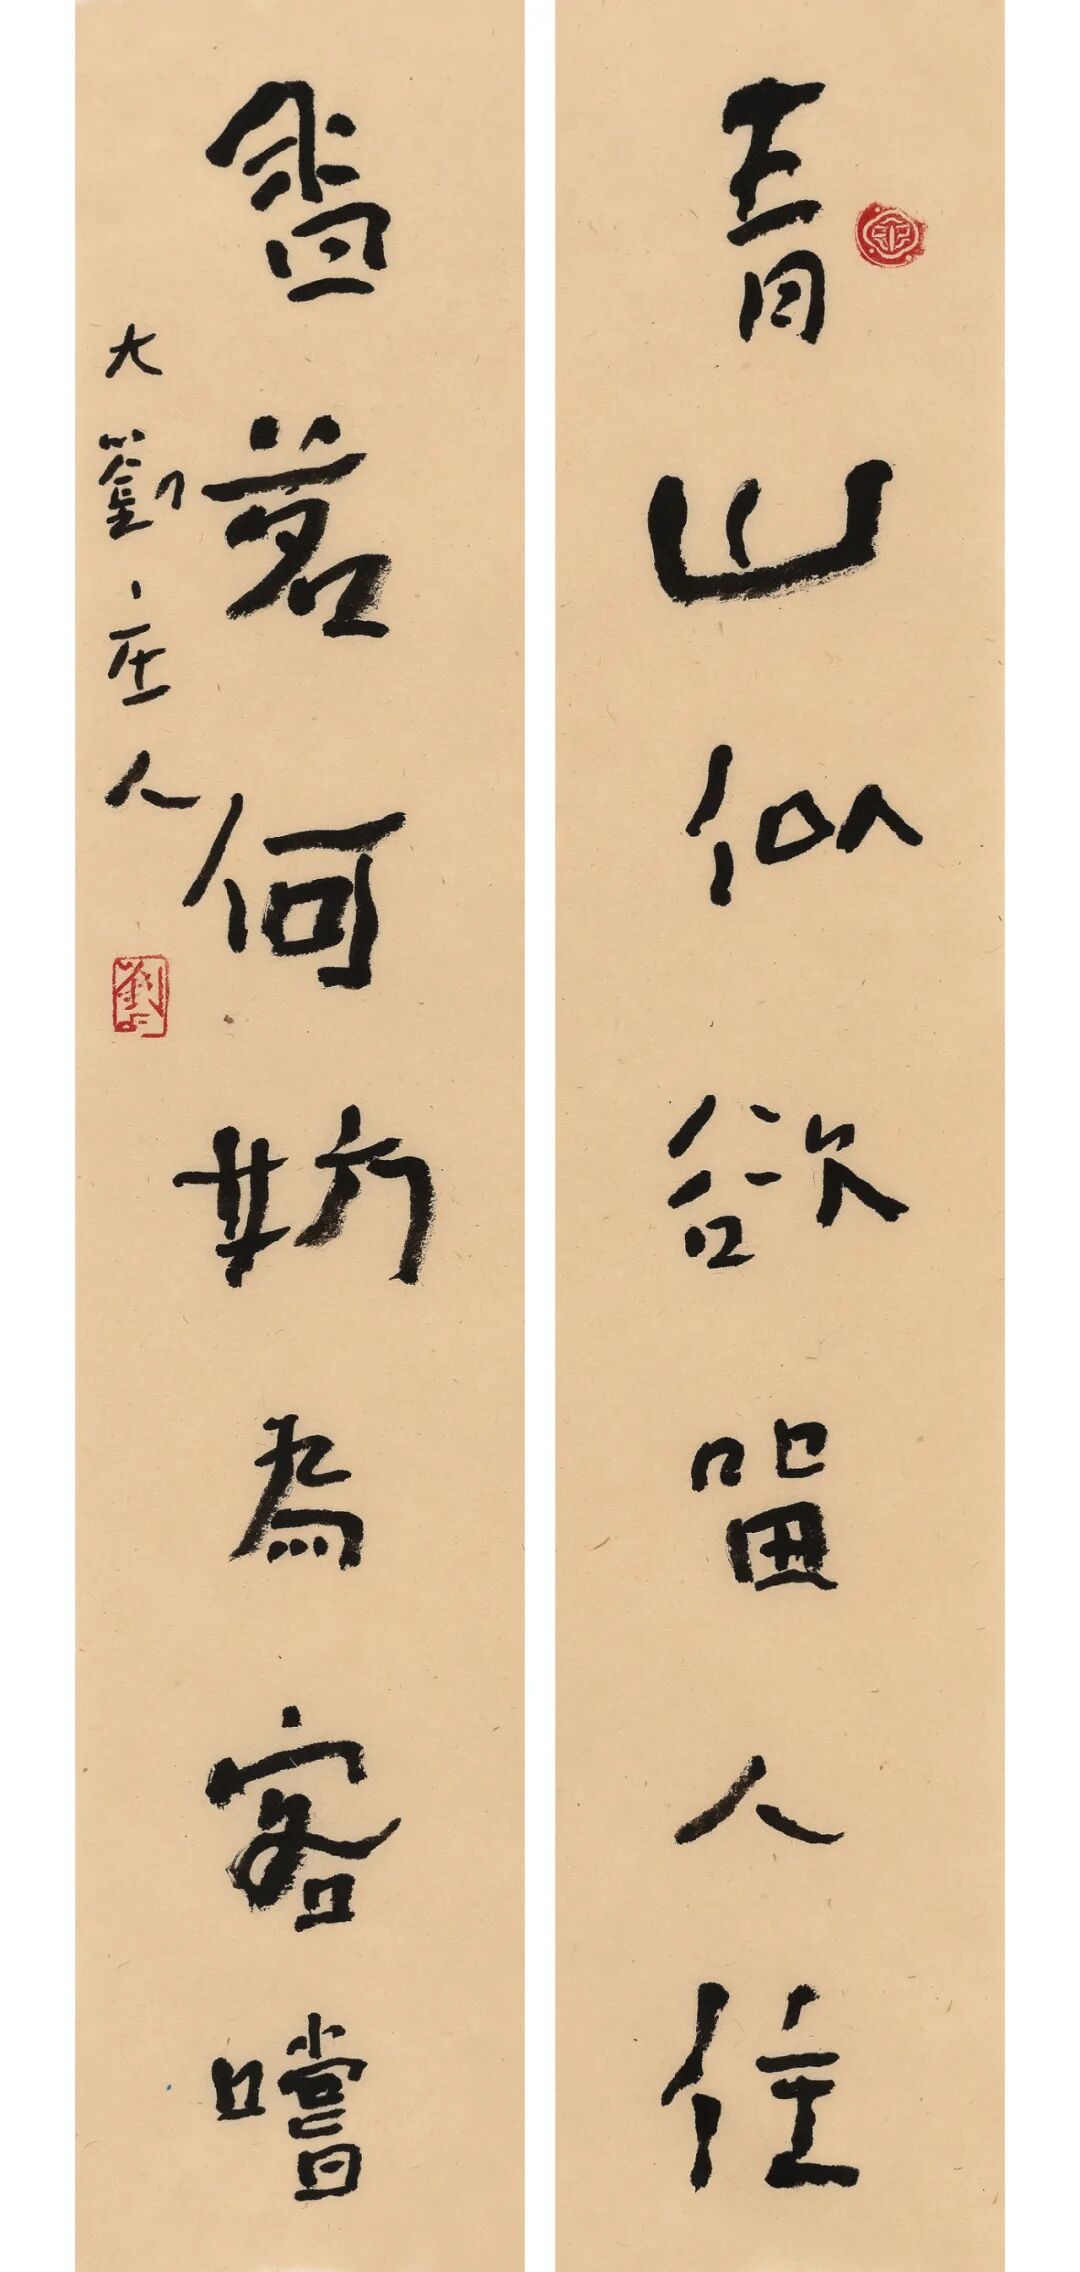 青山似欲留人住
香茗何妨為客嚐
大劉庄人